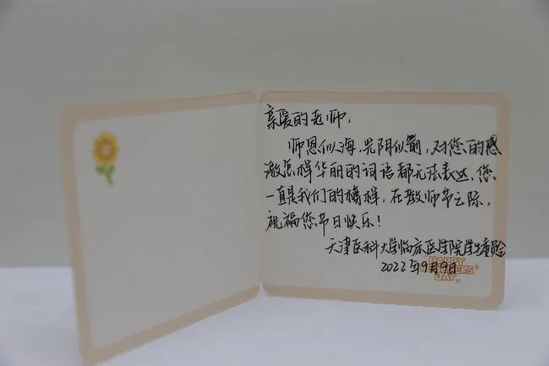 亲爱的老师，
师恩似海，光阴似箭，对您的感
激怎样华丽的词语都无法表达，您
一直是我们的榜样，在教师节之际，
祝福您节日快乐！
天津医科大学临床医学院学生委员会
2022年9月9日
HAPPY
TEACHERS'
DAY